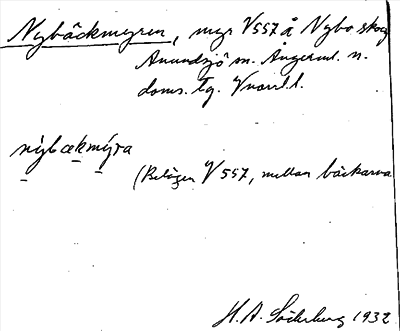 Nybäckmyren, myr V 557 å Nybo skog
Anundsjö sn. Ångerml. n.
doms. tg. Vnorrl. l.
nýbækmýra
(Belägen V 557, mellan bäckarna
H. A. Söderberg 1932